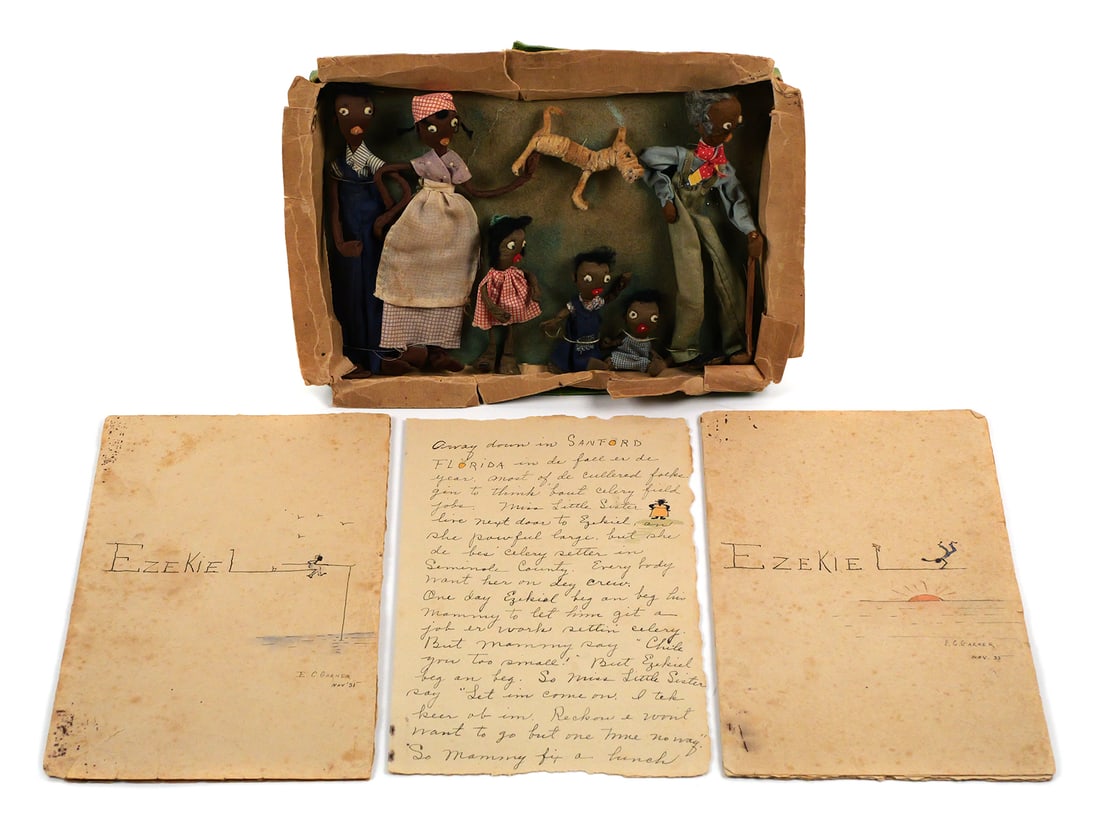 EZEKIEL
E. C. GARNER
NOV '35
Away down in SANFORD
FLORIDA in de fall er de
year, most of de cullered folks
gin to think 'bout celery field
jobs. Miss Little Sister
live next door to Ezekiel an
she powful large, but she
de bes' celery setter in
Seminole County. Everybody
want her on dey crew.
One day Ezekiel beg an beg his
Mammy to let him git a
job er work settin' celery.
But Mammy say "Chile
you too small!" But Ezekiel
beg an beg. So Miss Little Sister
say "Let im come on, I tek
keer ob im. Reckon e won't
want to go but one time no way."
So Mammy fix a bunch
EZEKIEL
E. C. GARNER
NOV. 35